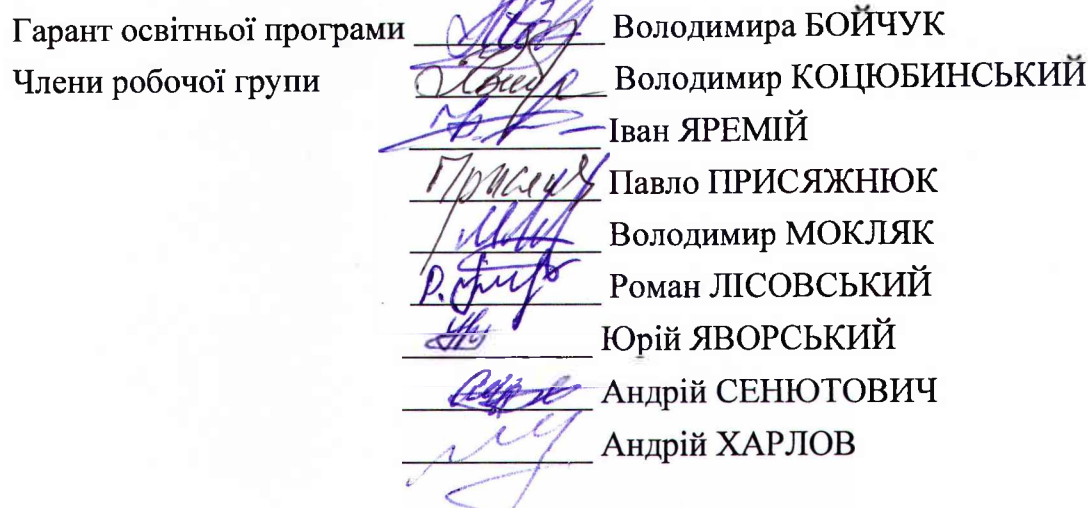 Гарант освітньої програми Володимира БОЙЧУК
Члени робочої групи Володимир КОЦЮБИНСЬКИЙ
Іван ЯРЕМІЙ
Павло ПРИСЯЖНЮК
Володимир МОКЛЯК
Роман ЛІСОВСЬКИЙ
Юрій ЯВОРСЬКИЙ
Андрій СЕНЮТОВИЧ
Андрій ХАРЛОВ